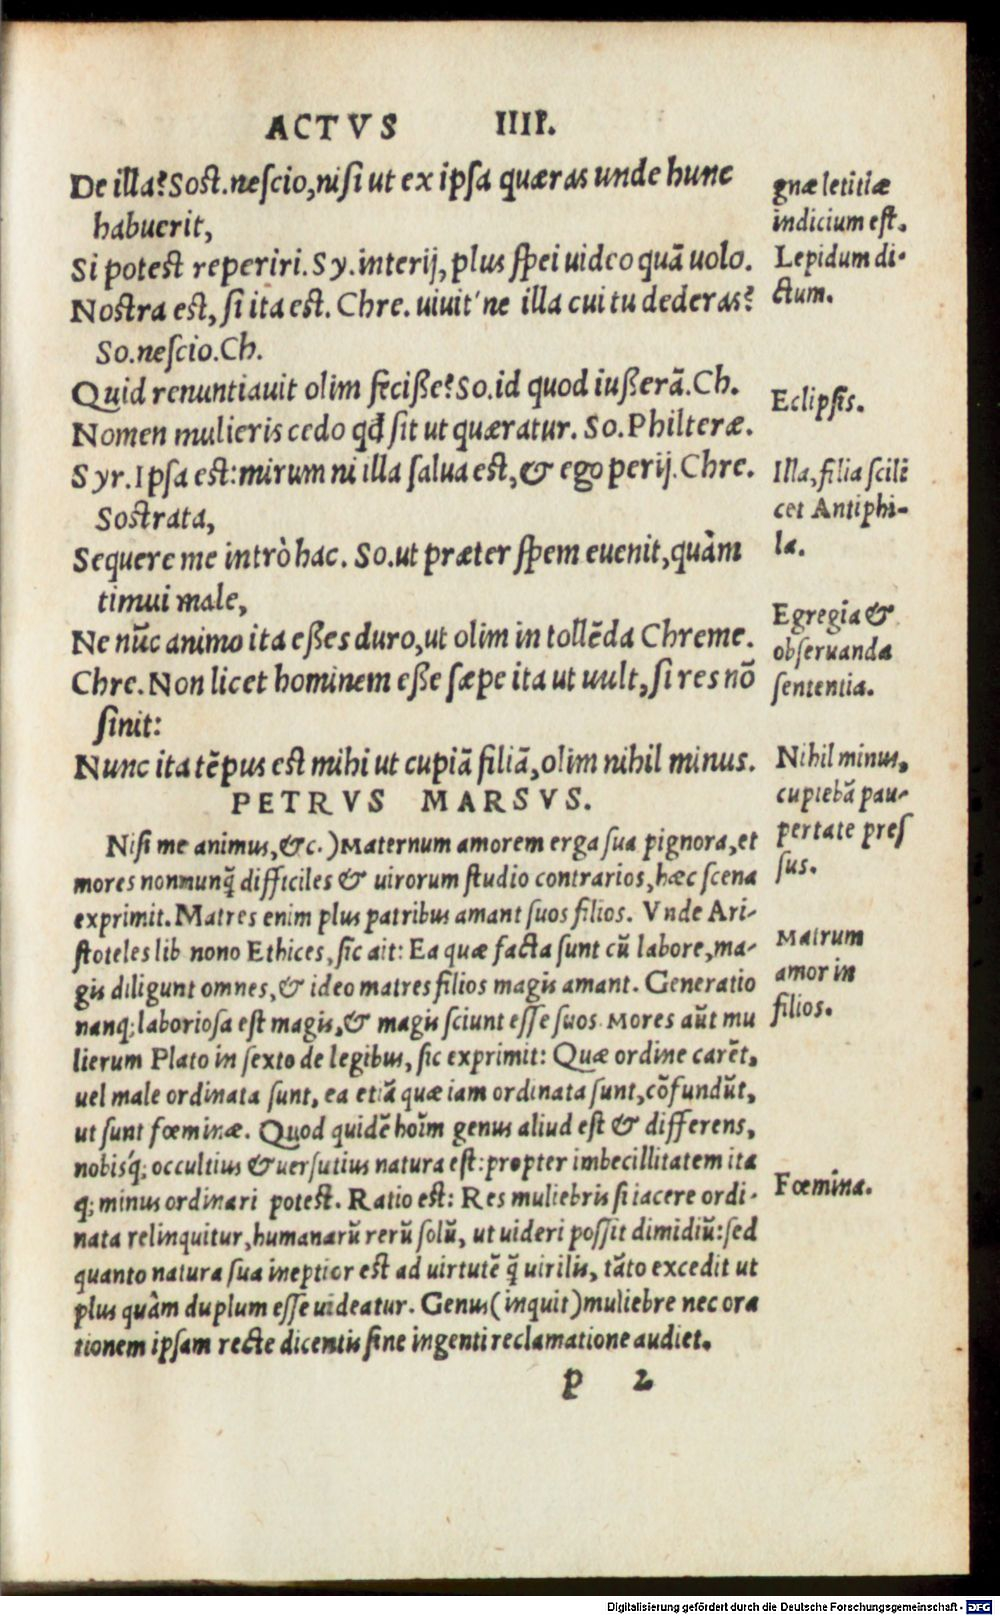 ACTVS IIII.
De illa? Sost. nescio, nisi ut ex ipsa quæras unde hunc
habuerit,
Si potest reperiri. Sy. interij, plus spei uideo quā uolo.
Nostra est, si ita est. Chre. uiuit'ne illa cui tu dederas?
So. nescio. Ch.
Quid renuntiauit olim feciße? So. id quod iußerā. Ch.
Nomen mulieris cedo qđ sit ut quæratur. So. Philteræ.
Syr. Ipsa est: mirum ni illa salua est, & ego perij. Chre.
Sostrata,
Sequere me intrò hac. So. ut præter spem euenit, quàm
timui male,
Ne nūc animo ita eßes duro, ut olim in tollēda Chreme.
Chre. Non licet hominem eße sæpe ita ut uult, si res nō
sinit:
Nunc ita tēpus est mihi ut cupiā filiā, olim nihil minus.
PETRVS MARSVS.
Nisi me animus, &c.) Maternum amorem erga sua pignora, et
mores nonnunq̃ difficiles & uirorum studio contrarios, hæc scena
exprimit. Matres enim plus patribus amant suos filios. Vnde Ari-
stoteles lib nono Ethices, sic ait: Ea quæ facta sunt cū labore, ma-
gis diligunt omnes, & ideo matres filios magis amant. Generatio
nanq; laboriosa est magis, & magis sciunt esse suos. Mores aūt mu
lierum Plato in sexto de legibus, sic exprimit: Quæ ordine carēt,
uel male ordinata sunt, ea etiā quæ iam ordinata sunt, cōfundūt,
ut sunt fœminæ. Quod quidē hoīm genus aliud est & differens,
nobisq́; occultius & uersutius natura est: propter imbecillitatem ita
q; minus ordinari potest. Ratio est: Res muliebris si iacere ordi-
nata relinquitur, humanarū rerū solū, ut uideri possit dimidiū: sed
quanto natura sua ineptior est ad uirtutē q̃ uirilis, tāto excedit ut
plus quàm duplum esse uideatur. Genus (inquit) muliebre nec ora
tionem ipsam recte dicentis sine ingenti reclamatione audiet.
p 2
gnæ letitiæ
indicium est.
Lepidum di-
ctum.
Eclipsis.
Illa, filia scilē
cet Antiphi-
la.
Egregia &
obseruanda
sententia.
Nihil minus,
cupiebā pau-
pertate pres
sus.
Matrum
amor in
filios.
Fœmina.
Digitalisierung gefördert durch die Deutsche Forschungsgemeinschaft - DFG